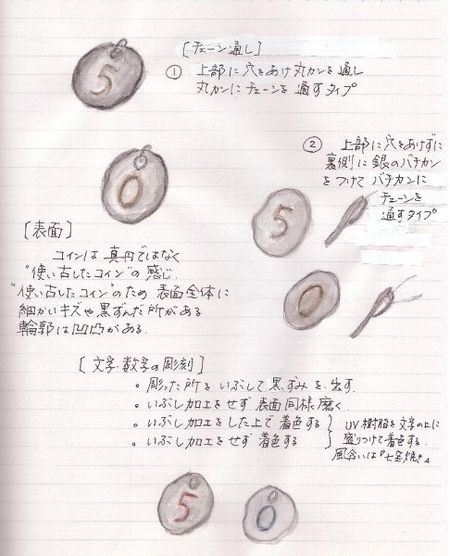 [チェーン通し]
① 上部に穴をあけ丸カンを通し
丸カンにチェーンを通すタイプ
5
0
② 上部に穴をあけずに
裏側に銀のバチカン
をつけてバチカンに
チェーンを
通すタイプ
5
0
[表面]
コインは真円ではなく
"使い古したコイン"の感じ.
"使い古したコイン"のため 表面全体に
細かいキズや黒ずんだ所がある
輪郭は凹凸がある.
[文字 数字の彫刻]
・彫った所をいぶして黒ずみを出す.
・いぶし加工をせず 表面同様磨く.
・いぶし加工をした上で着色する
・いぶし加工をせず 着色する
UV樹脂を文字の上に
盛りつけて着色する.
風合いは『七宝焼き』
5
0